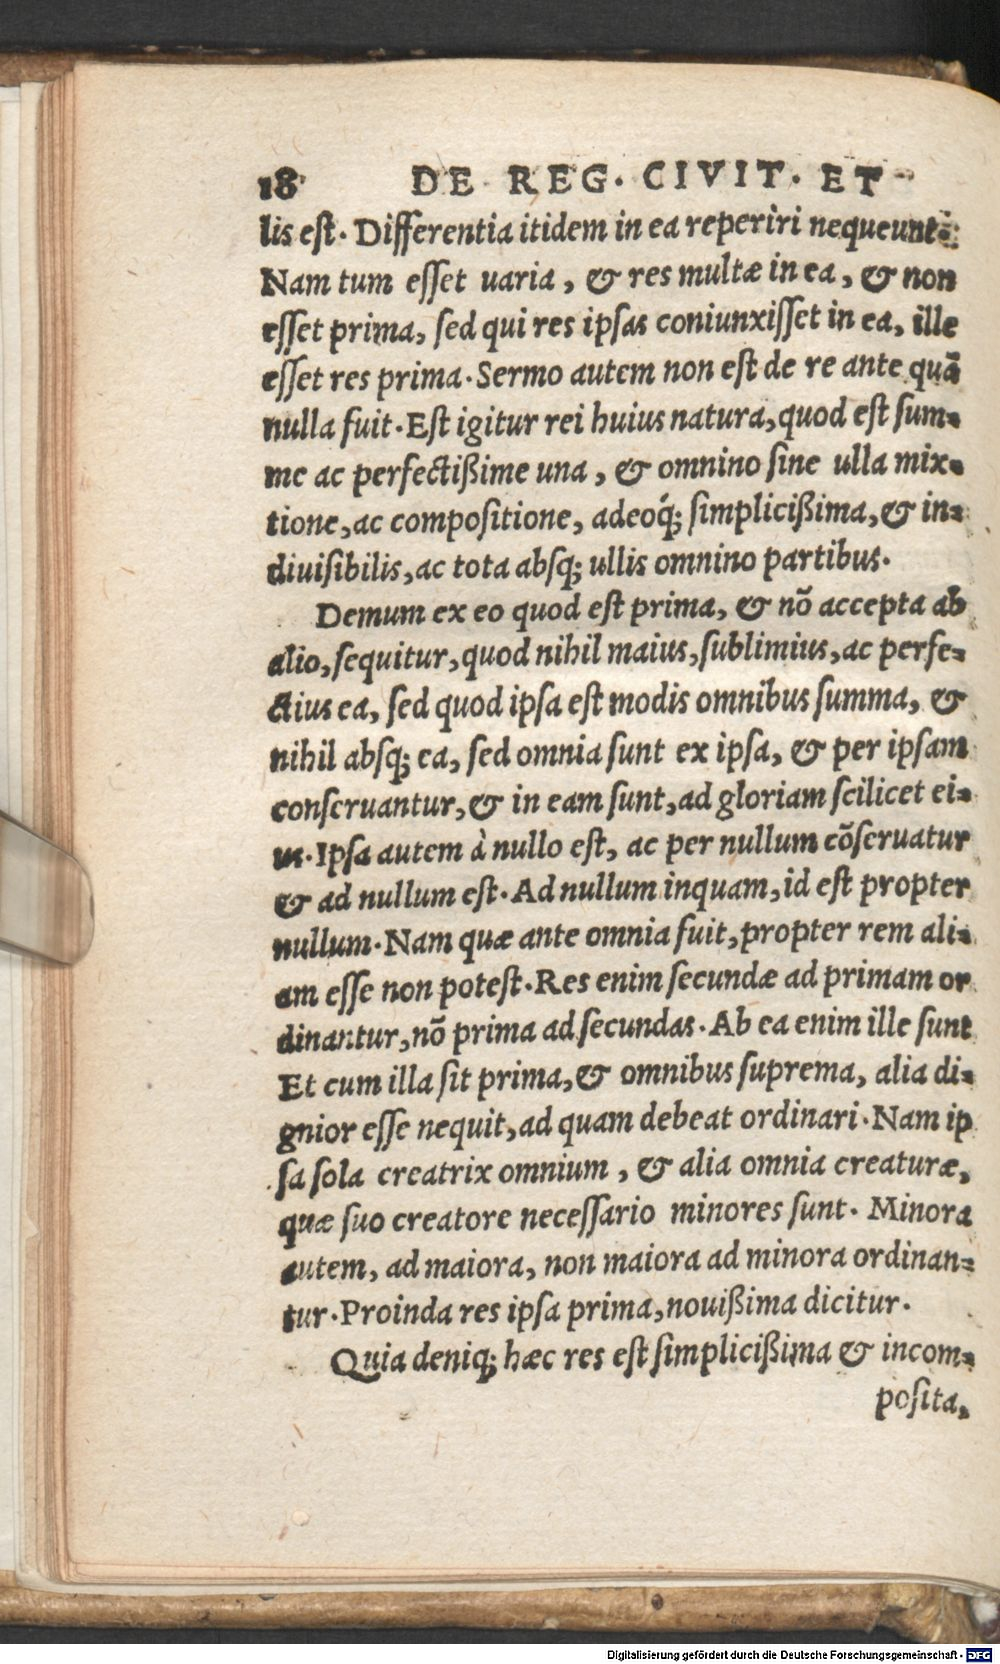 18 DE REG. CIVIT. ET
lis est. Differentia itidem in ea reperiri nequeunt.
Nam tum esset uaria, & res multæ in ea, & non
esset prima, sed qui res ipsas coniunxisset in ea, ille
esset res prima. Sermo autem non est de re ante quā
nulla fuit. Est igitur rei huius natura, quod est sum-
me ac perfectißime una, & omnino sine ulla mix-
tione, ac compositione, adeoq́; simplicißima, & in-
diuisibilis, ac tota absq; ullis omnino partibus.
Demum ex eo quod est prima, & nō accepta ab
alio, sequitur, quod nihil maius, sublimius, ac perfe-
ctius ea, sed quod ipsa est modis omnibus summa, &
nihil absq; ea, sed omnia sunt ex ipsa, & per ipsam
conseruantur, & in eam sunt, ad gloriam scilicet ei-
us. Ipsa autem à nullo est, ac per nullum cōseruatur
& ad nullum est. Ad nullum inquam, id est propter
nullum. Nam quæ ante omnia fuit, propter rem ali-
am esse non potest. Res enim secundæ ad primam or
dinantur, nō prima ad secundas. Ab ea enim ille sunt
Et cum illa sit prima, & omnibus suprema, alia di-
gnior esse nequit, ad quam debeat ordinari. Nam ip
sa sola creatrix omnium, & alia omnia creaturæ,
quæ suo creatore necessario minores sunt. Minora
autem, ad maiora, non maiora ad minora ordinan-
tur. Proinda res ipsa prima, nouißima dicitur.
Quia deniq; hæc res est simplicißima & incom-
posita,
Digitalisierung gefördert durch die Deutsche Forschungsgemeinschaft - DFG